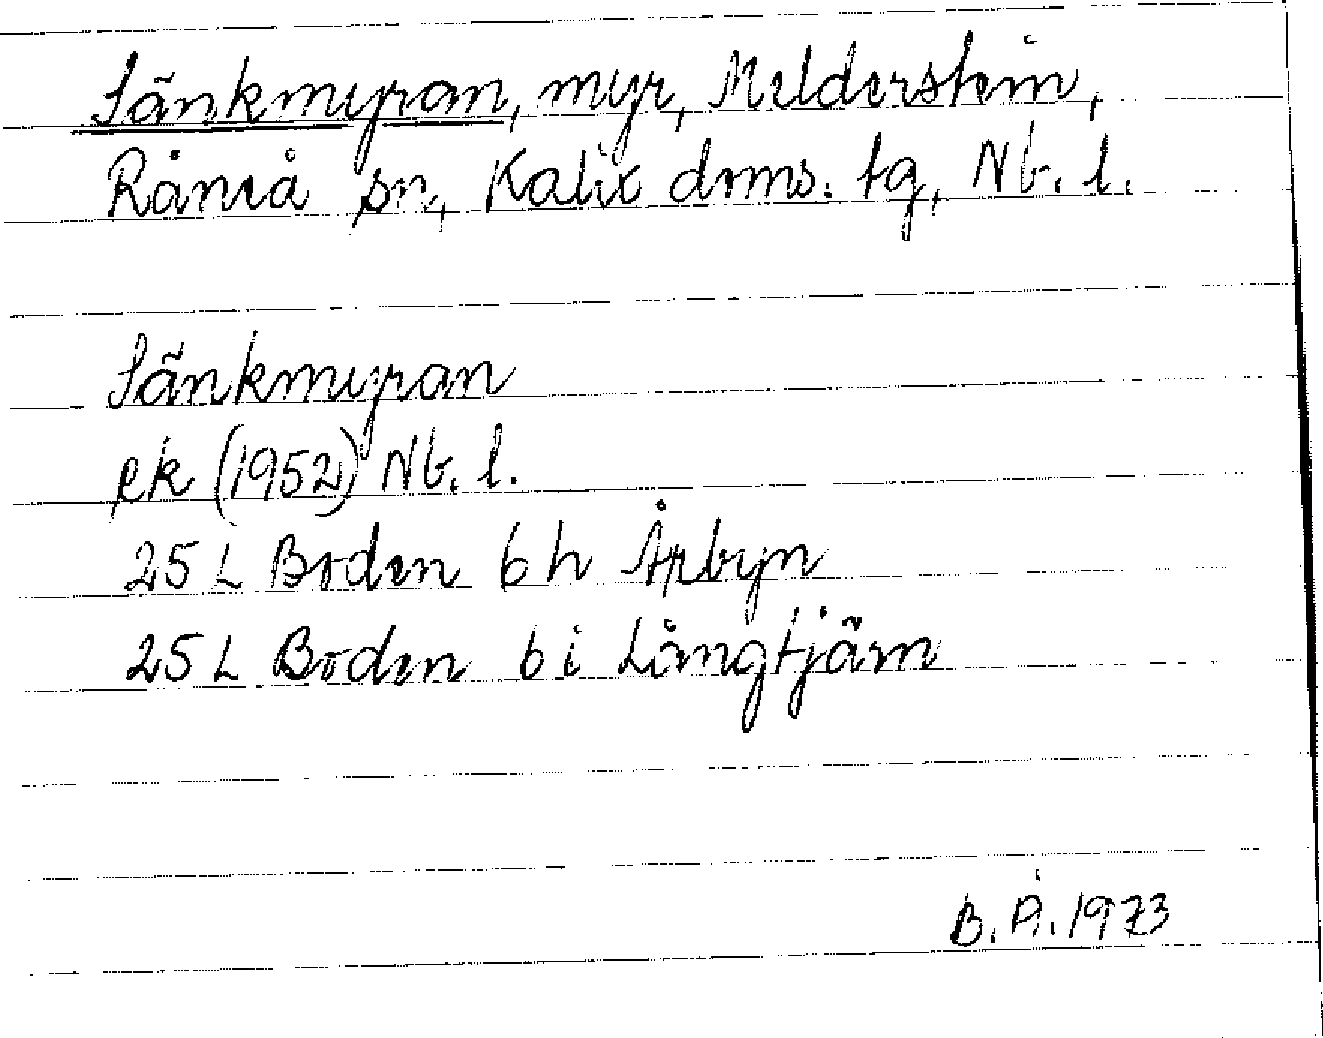 Sänkmyran, myr, Melderstein,
Råneå sn, Kalix doms. tg, Nb. l.
Sänkmyran
ek (1952) Nb. l.
25 L Boden 6 h Årbyn
25 L Boden 6 i Långtjärn
B. Å. 1973